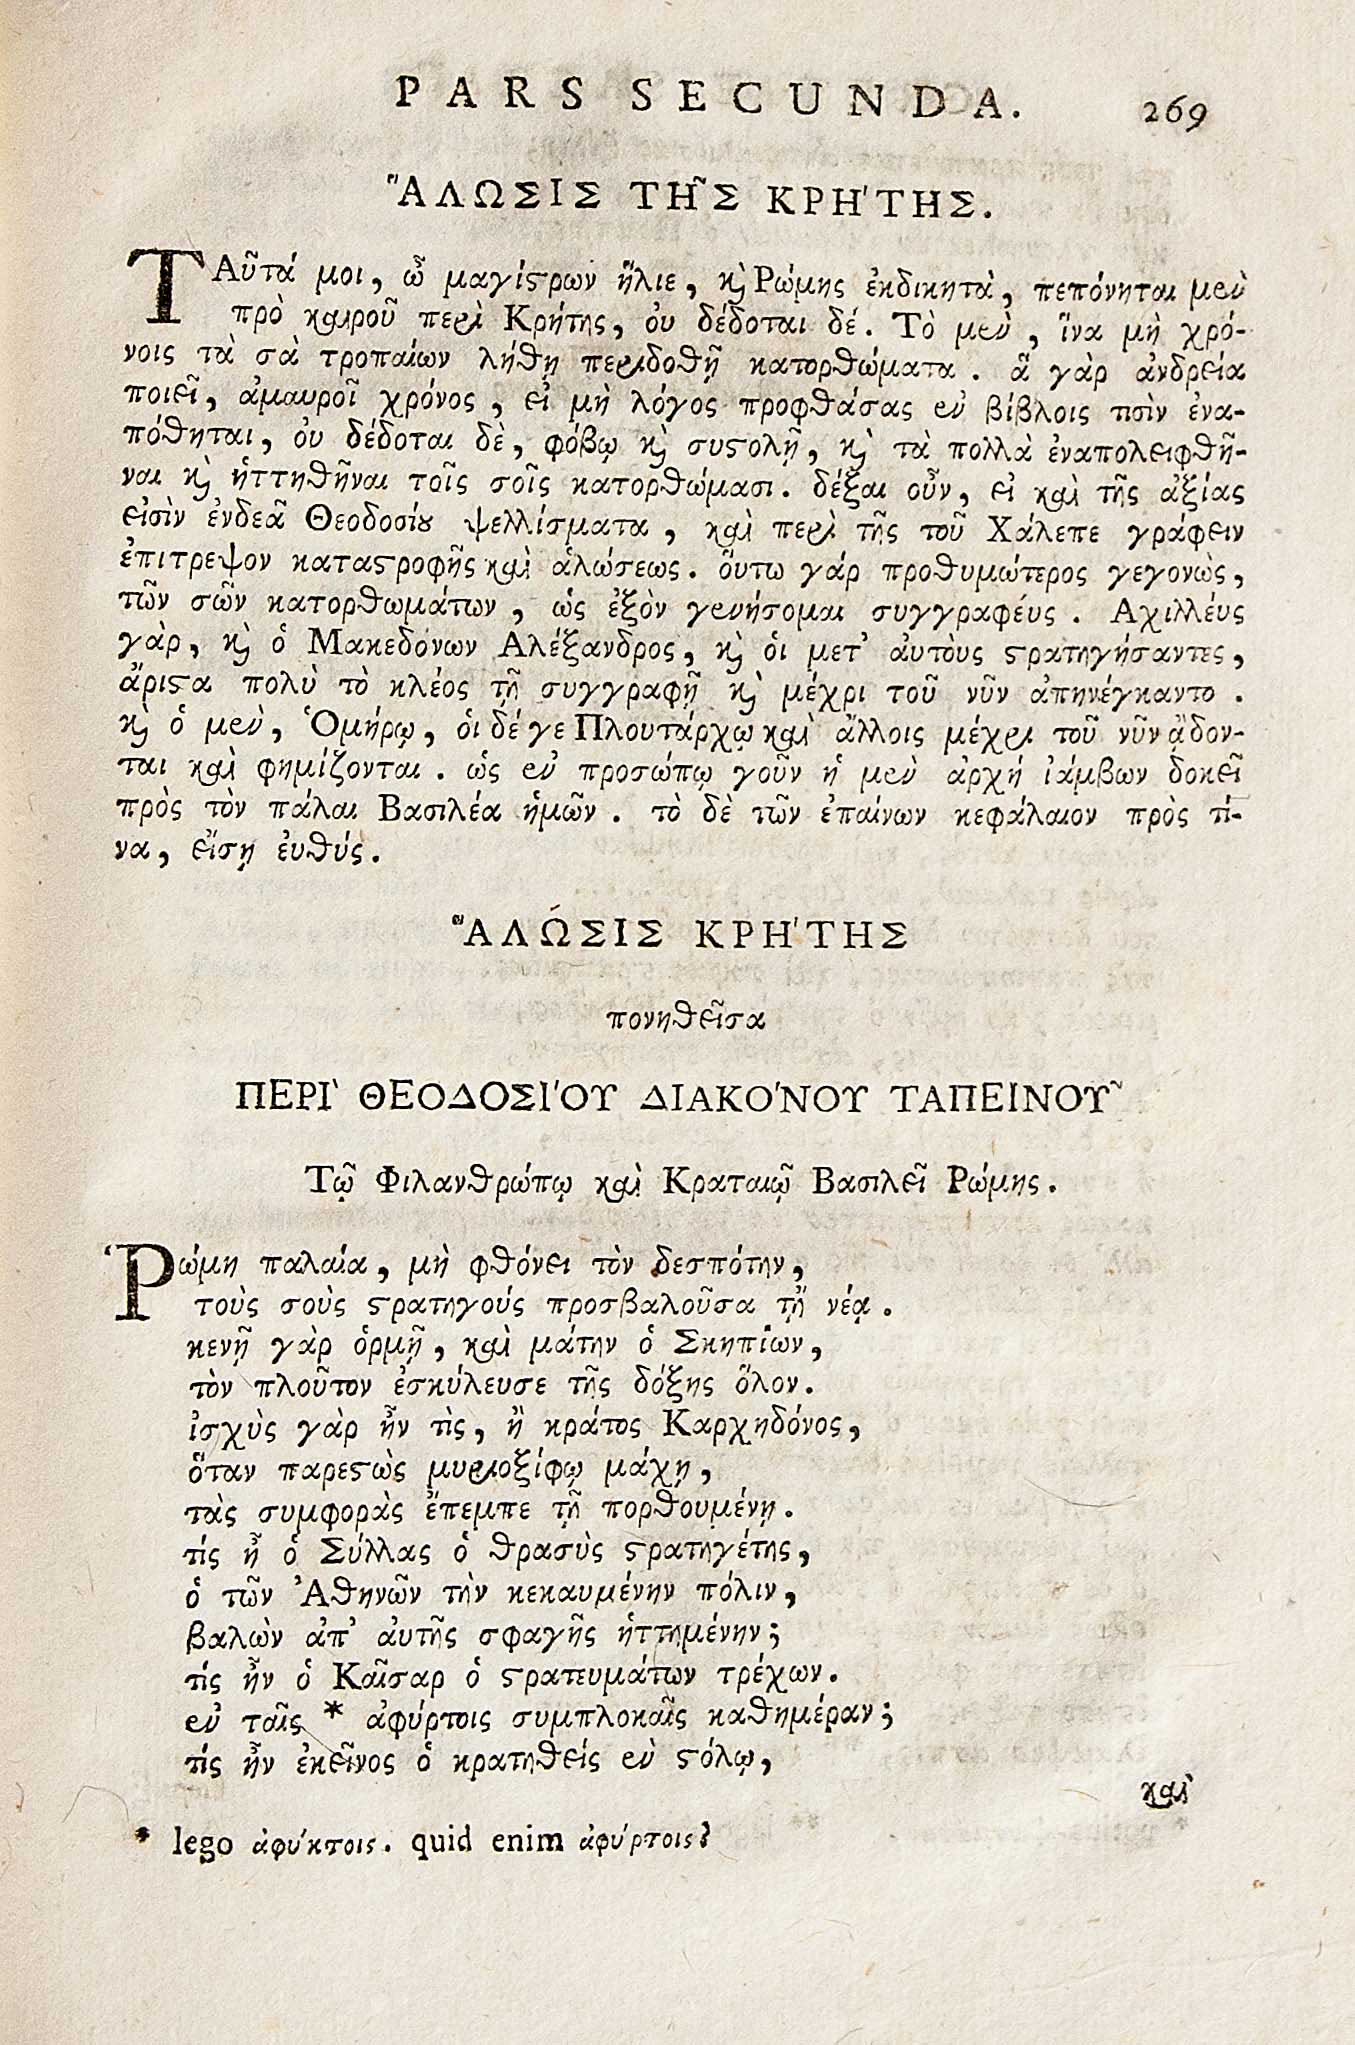 PARS SECUNDA. 269
ἍΛΩΣΙΣ ΤΗ͂Σ ΚΡΉΤΗΣ.
ΤΑῦτά μοι, ὦ μαγίϛρων ἥλιε, κ̀ Ῥώμης ἐκδικητὰ, πεπόνηται μὲν
πρὸ καιροῦ περὶ Κρήτης, ὀυ δέδοται δέ. Τὸ μὲν, ἵνα μὴ χρό-
νοις τὰ σὰ τροπαίων λήθῃ περιδοθῇ κατορθώματα. ἃ γὰρ ἀνδρεία
ποιεῖ, ἀμαυροῖ χρόνος, εἰ μὴ λόγος προφθάσας ἐν βίβλοις τισὶν ἐνα-
πόθηται, ὀυ δέδοται δὲ, φόβῳ κ̀ συϛολῇ, κ̀ τὰ πολλὰ ἐναπολειφθῆ-
ναι κ̀ ἡττηθῆναι τοῖς σοῖς κατορθώμασι. δέξαι οὖν, εἰ καὶ τῆς ἀξίας
εἰσὶν ἐνδεᾶ Θεοδοσίȣ ψελλίσματα, καὶ περὶ τῆς τοῦ Χάλεπε γράφειν
ἐπιτρεψον καταϛροφῆς καὶ ἁλώσεως. ὅυτω γάρ προθυμώτερος γεγονὼς,
τῶν σῶν κατορθωμάτων, ὡς ἐξὸν γενήσομαι συγγραφέυς. Αχιλλέυς
γὰρ, κ̀ ὁ Μακεδόνων Αλέξανδρος, κ̀ ὁι μετ' ἀυτὸυς ϛρατηγήσαντες,
ἄριϛα πολὺ τὸ κλέος τῇ συγγραφῇ κ̀ μέχρι τοῦ νῦν ἀπηνέγκαντο.
κ̀ ὁ μὲν, Ὁμήρῳ, ὁι δέ γε Πλουτάρχῳ καὶ ἄλλοις μέχρι τοῦ νῦν ᾄδον-
ται καὶ φημίζονται. ὡς ἐν προσώπῳ γοῦν ἡ μὲν ἀρχή ἰάμβων δοκεῖ
πρὸς τὸν πάλαι Βασιλέα ἡμῶν. τὸ δὲ τῶν ἐπαίνων κεφάλαιον πρὸς τί-
να, εἴσῃ ἐυθύς.
ἍΛΏΣΙΣ ΚΡΉΤΗΣ
πονηθεῖσα
ΠΕΡῚ ΘΕΟΔΟΣΊΟΥ ΔΙΑΚΌΝΟΥ ΤΑΠΕΙΝΟΥ͂
Τῷ Φιλανθρώπῳ καὶ Κραταιῷ Βασιλεῖ Ρώμης.
Ῥώμη παλαία, μὴ φθόνει τὸν δεσπότην,
τοὺς σοὺς ϛρατηγούς προσβαλοῦσα τῇ νέᾳ.
κενῇ γὰρ ὁρμῇ, καὶ μάτην ὁ Σκηπίων,
τὸν πλοῦτον ἐσκύλευσε τῆς δόξης ὅλον.
ἰσχὺς γὰρ ἦν τὶς, ἢ κράτος Καρχηδόνος,
ὅταν παρεϛὼς μυριοξίφῳ μάχῃ,
τὰς συμφορὰς ἔπεμπε τῇ πορθουμένῃ.
τίς ἦ ὁ Σύλλας ὁ θρασὺς ϛρατηγέτης,
ὁ τῶν Ἀθηνῶν τὴν κεκαυμένην πόλιν,
βαλὼν ἀπ' ἀυτῆς σφαγῆς ἡττημένην;
τίς ἦν ὁ Καῖσαρ ὁ ϛρατευμάτων τρέχων.
ἐν ταῖς * ἀφύρτοις συμπλοκαῖς καθημέραν;
τίς ἦν ἐκεῖνος ὁ κρατηθείς ἐν ϛόλῳ,
καὶ
* lego ἀφύκτοις. quid enim ἀφύρτοις?